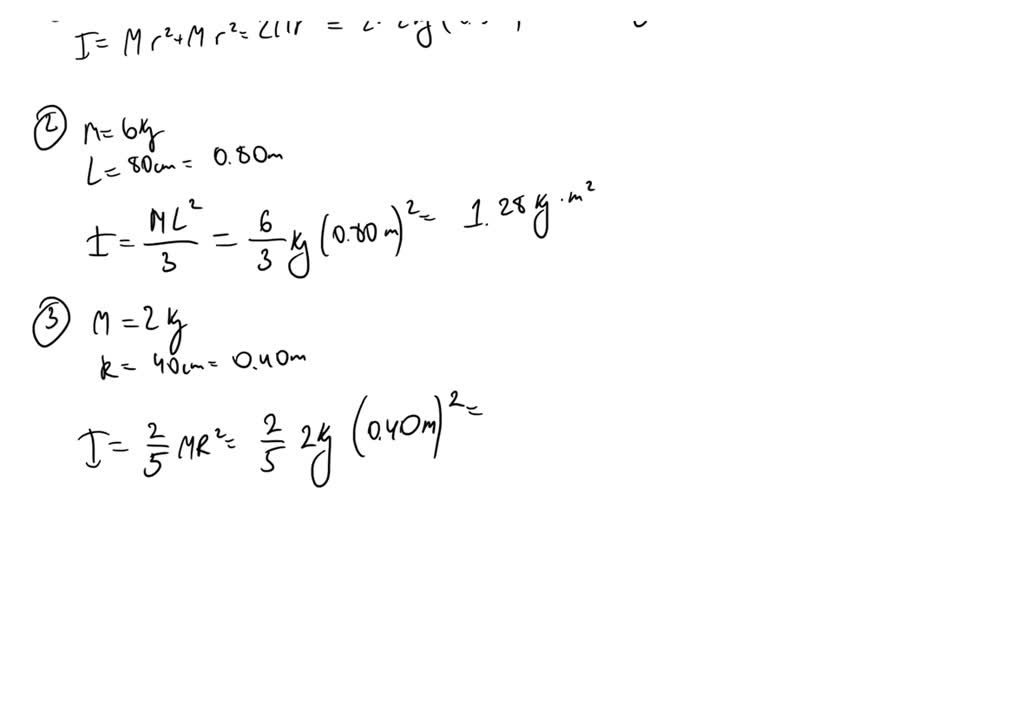 I = Mr² + Mr² =
② M = 6kg
L = 80cm = 0.80m
I = ML²/3 = 6/3 kg (0.80m)² = 1.28 kg·m²
③ M = 2kg
R = 40cm = 0.40m
I = 2/5 MR² = 2/5 2kg (0.40m)² =